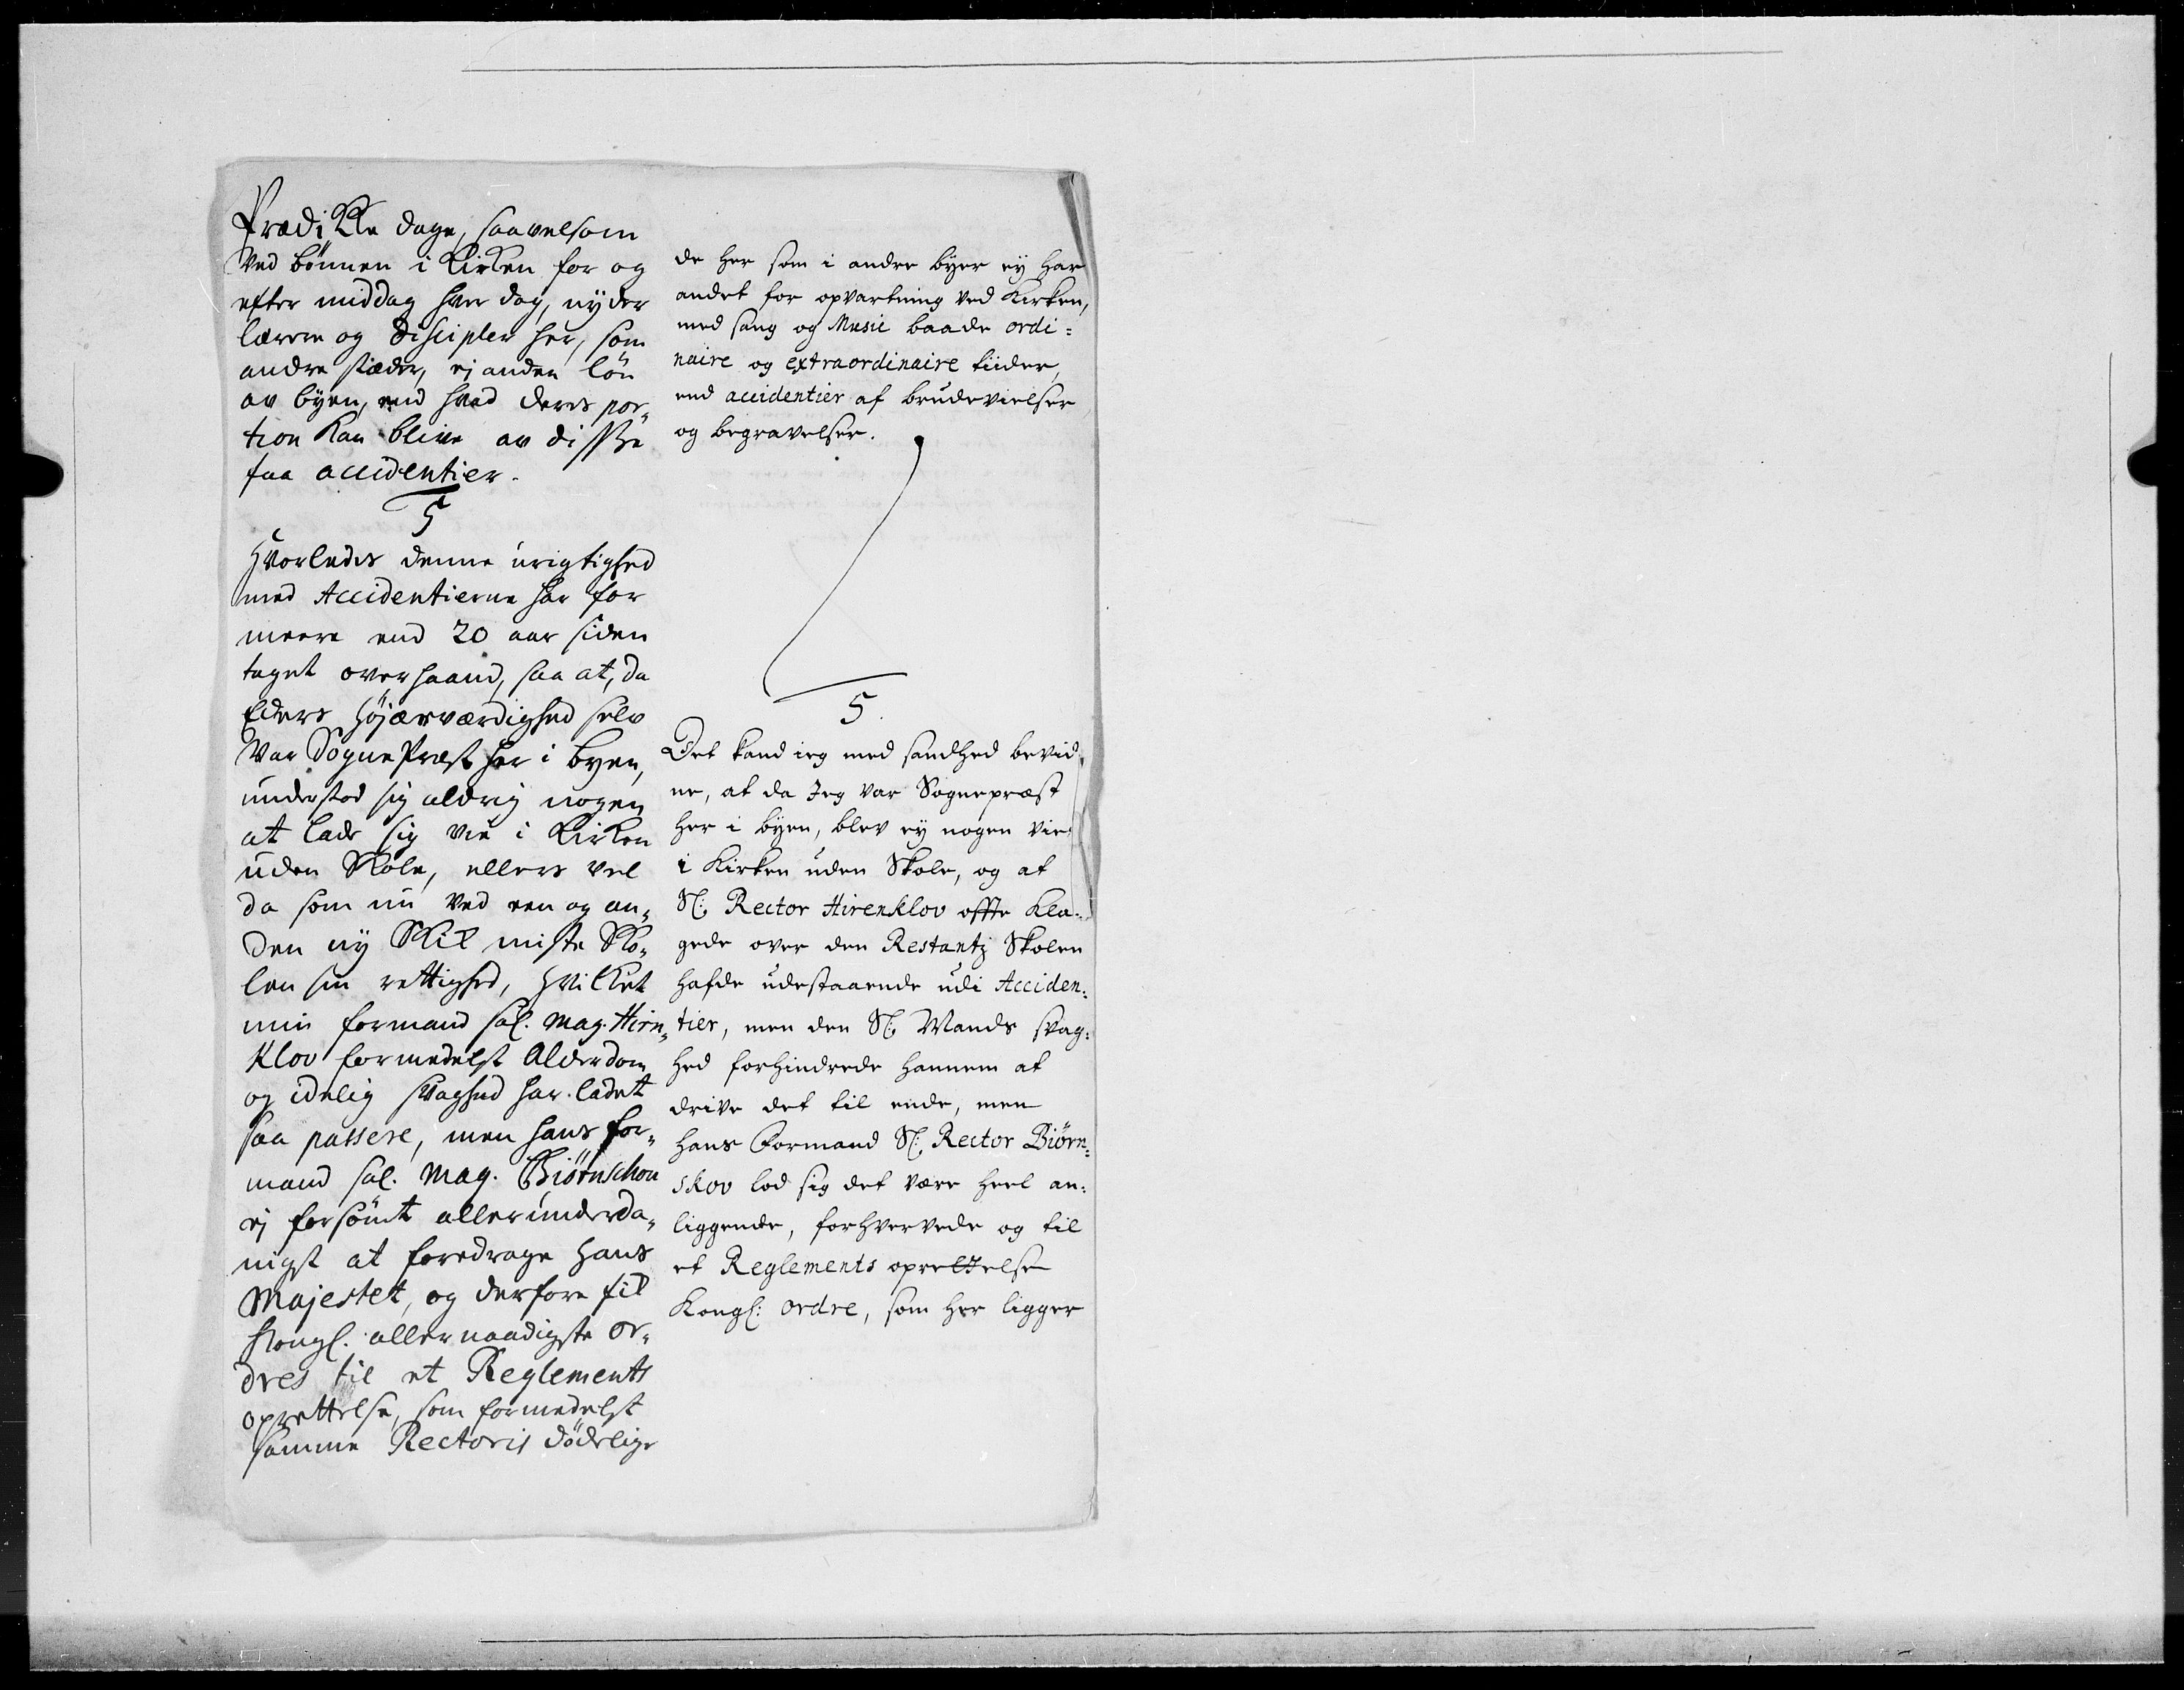 Prædikke dage, saavelsom
ved bønnen i Kirken for og
efter middag hver dag, nyder
lærere og Discipler her, som
andre stæder, ej anden løn
av byen, end hvad deres por„
tion kan blive av disse
faa accidentier.
5
Hvorledes denne urigtighed
med Accidentierne har for
meere end 20 aar siden
taget overhaand, saa at, da
Eders Højærværdighed selv
var Sogne Præst her i byen,
understod sig aldrig nogen
at lade sig vie i Kirken
uden Skole, ellers vel
da som nu ved een og an„
den ny Skik miste Sko„
len sin rettighed, hvilket
min formand sal. Mag. Hirn„
klov formedelst Alderdom
og idelig svaghed har ladet
saa passere, men hans for„
mand sal. Mag. Biörnschou
ej forsömt allerunderda„
nigst at foredrage Hans
Majestet, og derfore fik
Kongl. allernaadigste or„
dres til et Reglements
oprettelse, som formedelst
samme Rectoris dødelige
de her som i andre byer ey har
andet for opvartning ved Kirken,
med sang og Music baade ordi=
naire og extraordinaire tiider,
end accidentier af brudevielser
og begravelser.
5.
Det kand ieg med sandhed bevid
ne, at da Jeg var Sognepræst
her i byen, blev ey nogen vie
i Kirken uden Skole, og at
Sl: Rector Hirenklov offte kla=
gede over den Restantz Skolen
hafde udestaaende udi Acciden=
tier, men den Sl: Mands svag=
hed forhindrede hannem at
drive det til ende, men
hans Formand Sl: Rector Biörn=
skov lod sig det være heel an=
liggende, forhvervede og til
et Reglements oprettelse
Kongl: ordre, som her ligger